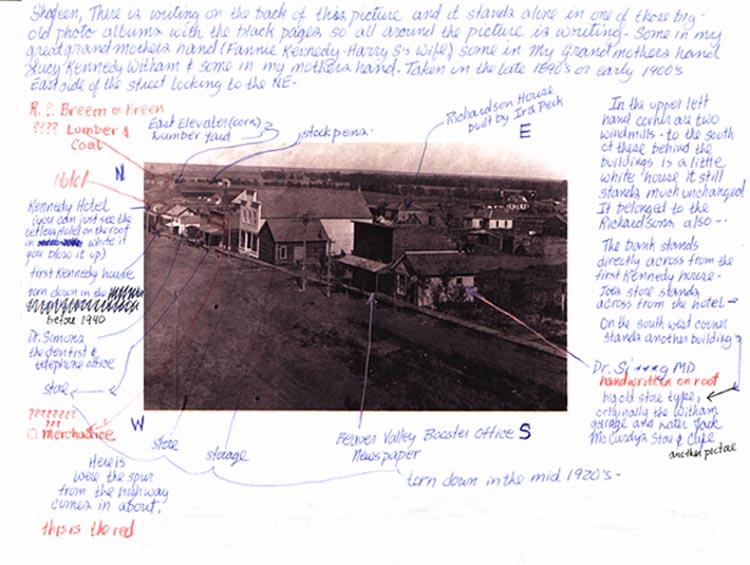 Shaleen, There is writing on the back of this picture and it stands alone in one of those big
old photo albums with the black pages so all around the picture is writing. Some in my
great grandmothers hand (Fannie Kennedy-Harry S's wife) some in My Grandmothers hand
Lucy Kennedy Witham & some in my mothers hand. Taken in the late 1890's or early 1900's
East side of the street looking to the NE-
R. ?. Breem or Breen
???? Lumber &
Coal
East Elevator (corn)
Lumber yard
stock pens
Richardson House
built by Ira Peck
E
N
Hotel
Kennedy Hotel
(you can just see the
letters Hotel on the roof
in white if
you blow it up)
first Kennedy house
torn down in the
before 1940
Dr. Simons
the dentist &
telephone office
store
????????
???
Merchandice
W
store
storage
Beaver Valley Booster Office
Newspaper
S
torn down in the mid 1920's-
Here is
were the spur
from the highway
comes in about.
this is the red
In the upper left
hand corner are two
windmills - to the south
of these behind the
buildings is a little
white house it still
stands much unchanged
It belonged to the
Richardsons also -
The bank stands
directly across from the
first Kennedy house.
Joes store stands
across from the hotel
On the south west corner
stands another building
MD
handwritten on roof
big old store type,
originally the Witham
garage and later Jack
McCurdy's Store & Cafe
another picture